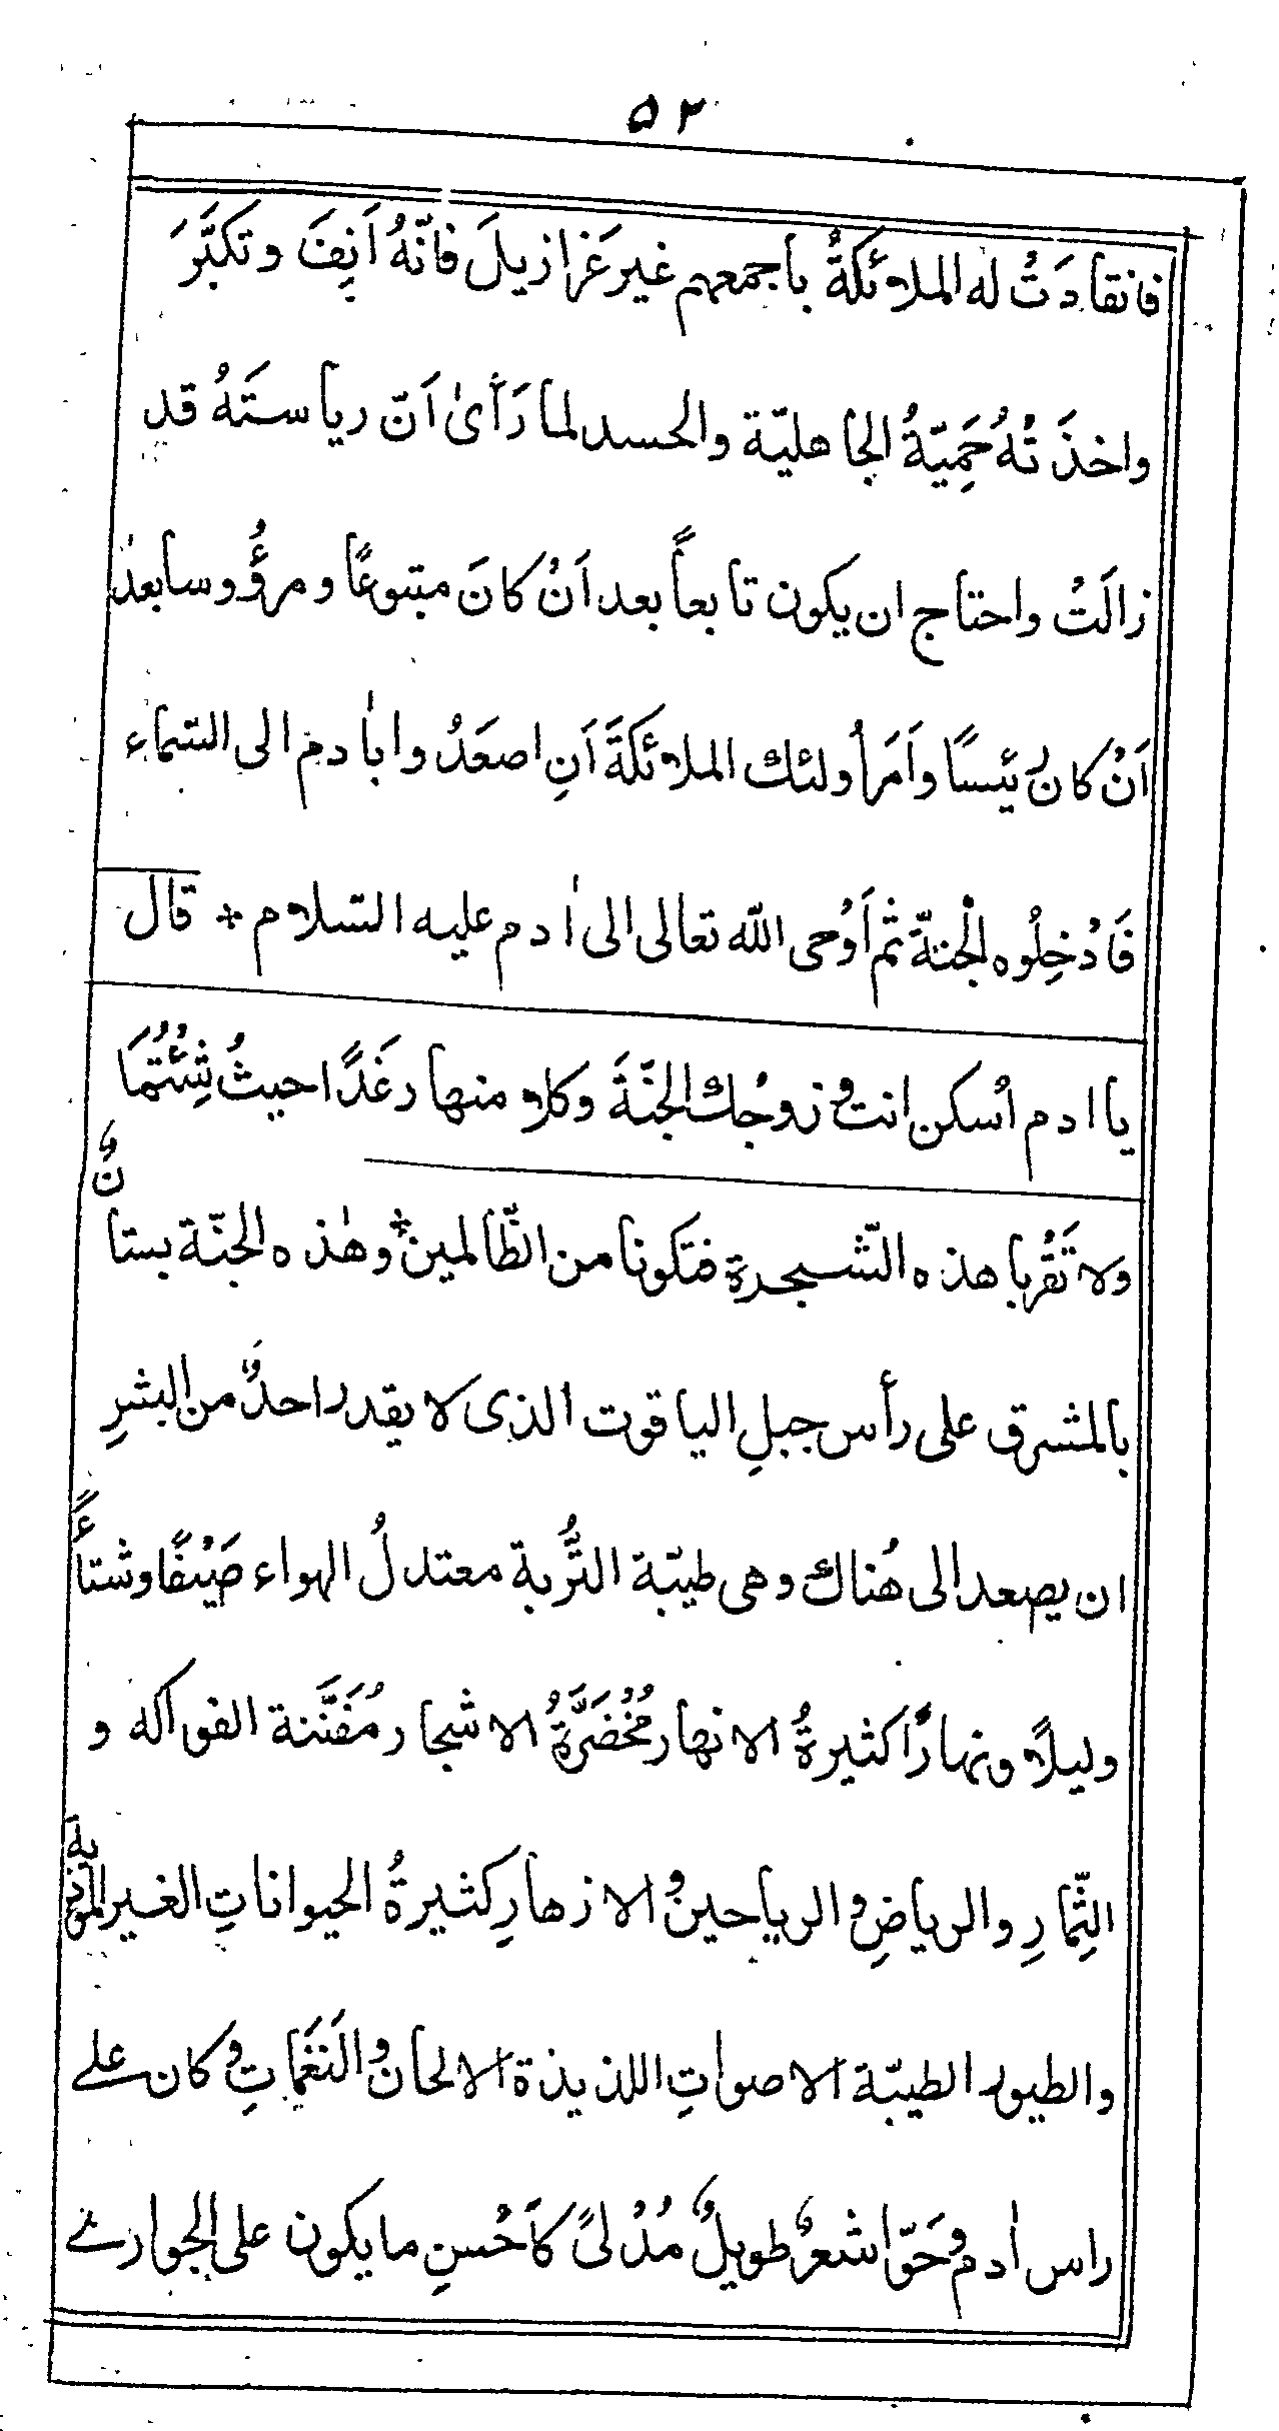 ٥٢
فانقادَتْ له الملائكةُ باجمعهم غير عَزازيلَ فانّهُ اَنِفَ وتكبَّرَ
واخذَتْهُ حَمِيَّةُ الجاهليّة والحسد لما رَأىٰ اَنّ رياستَهُ قد
زالَتْ واحتاج ان يكون تابعاً بعد اَنْ كانَ متبوعًا ومرؤُوسا بعدَ
اَنْ كان رئيسًا واَمَرَ أولئك الملائكةَ اَنِ اصعَدُوا بآدم الى السّماء
فَادْخِلُوه الْجنّة ثم اَوْحى اللّه تعالى الى اٰدم عليه السّلام * قال
يا ادم اُسكن انت وزوجُك الجنّةَ وكلا منها رغَدًا حيثُ شِئْتُمَا
ولا تَقْرُبا هذه الشّجرة فتكونا من الظّالمين * وهٰذه الجنّة بستانٌ
بالمشرق على رأس جبلِ الياقوت الذى لا يقدر احدٌ من البشرِ
ان يصعد الى هُناك وهى طيّبة التُّربة معتدلُ الهواء صَيْفًا وشتاءً
وليلًا ونهارًا كثيرةُ الانهار مُخْضَرَّةُ الاشجار مُفَنَّنة الفواكه و
الثِّمارِ والرياضِ والرياحينِ والازهارِ كثيرةُ الحيواناتِ الغير المؤذية
والطيور الطيبّة الاصواتِ اللذيذة الالحان والنَغَماتِ وكان على
راس اٰدم وحَوّا شعرٌ طويلٌ مُدْلىً كاَحْسنِ ما يكون على الجوارى